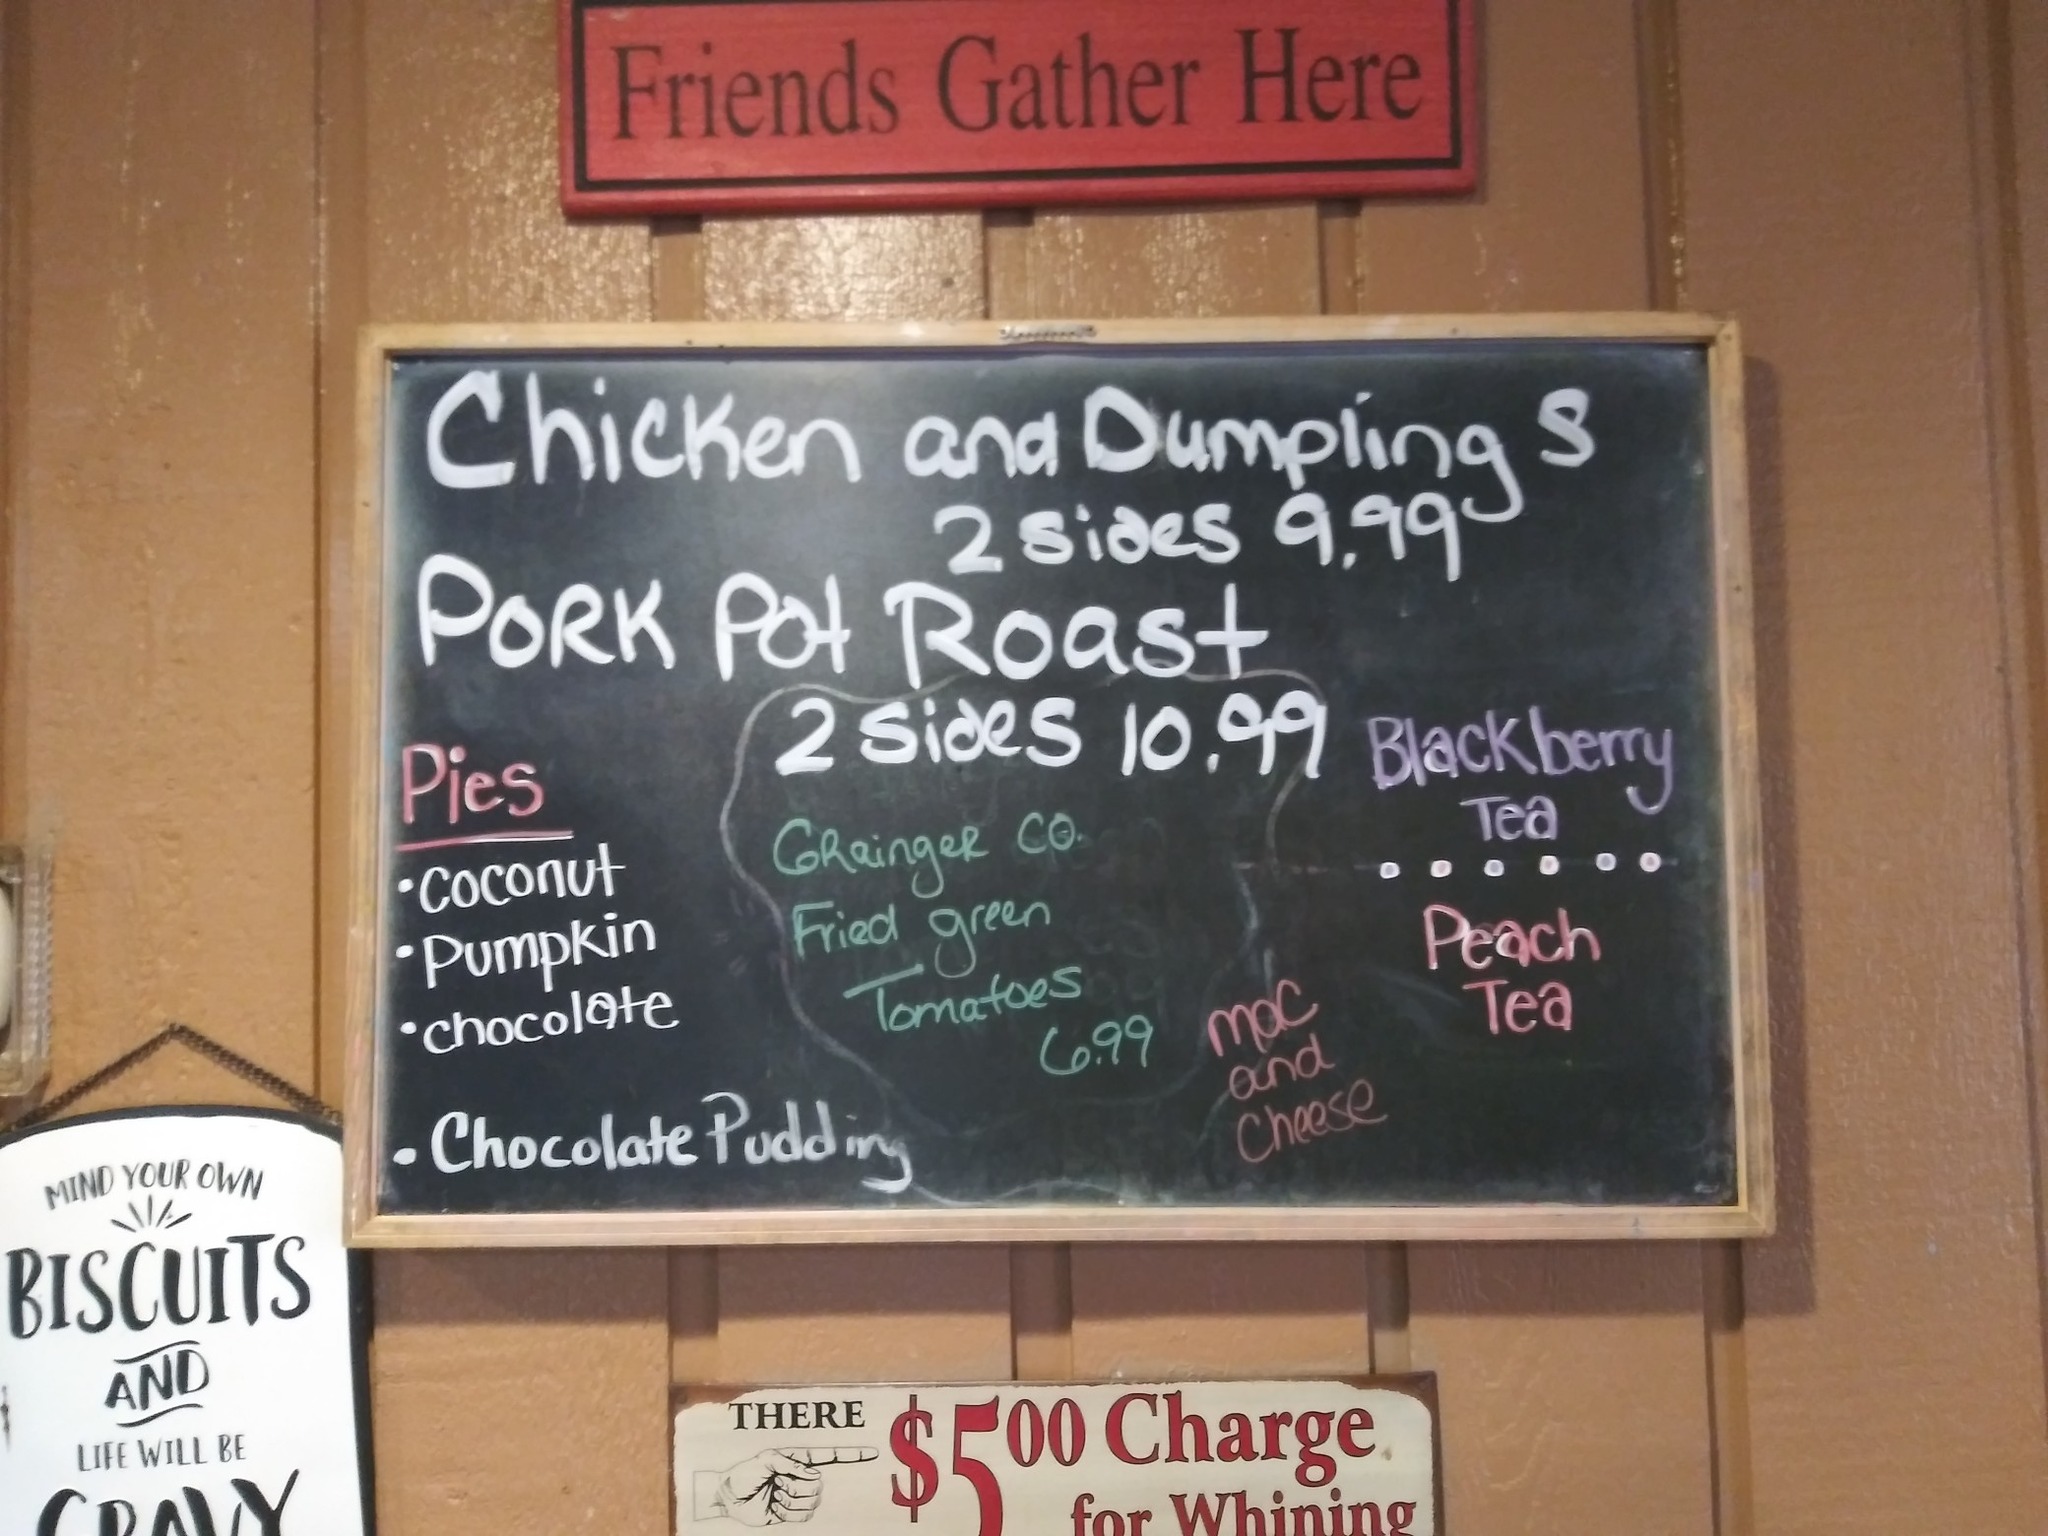 Friends Gather Here
Chicken and Dumplings
2 sides 9.99
Pork Pot Roast
2 sides 10.99
Pies
•Coconut
•Pumpkin
•chocolate
• Chocolate Pudding
Grainger CO.
Fried green
Tomatoes
6.99
mac
and
Cheese
Blackberry
Tea
Peach
Tea
MIND YOUR OWN
BISCUITS
AND
LIFE WILL BE
GRAVY
THERE $5.00 Charge
for Whining